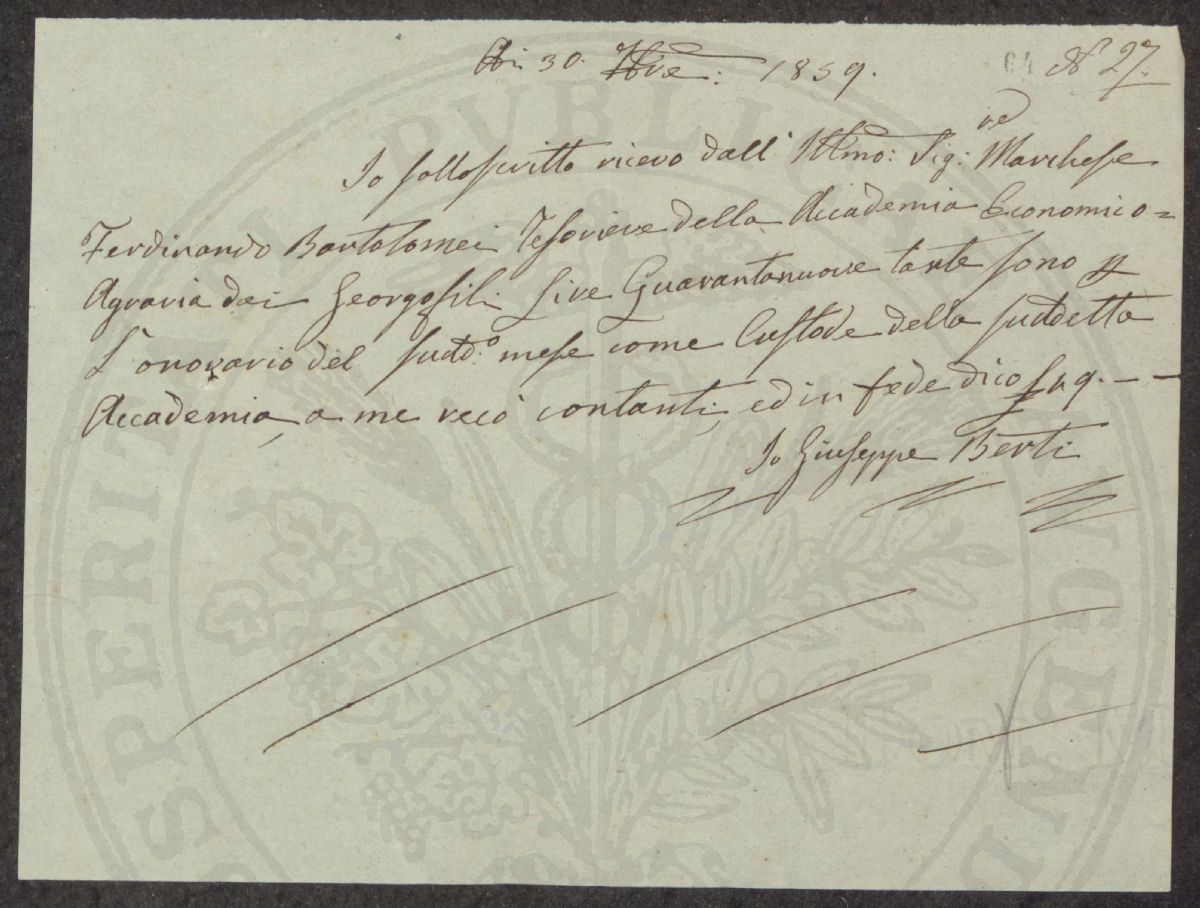 Adi 30. 9bre: 1859.
64 N 27.
Io sottoscritto ricevo dall' Illmo: Sig:re Marchese
Ferdinando Bartolomei Tesoriere della Accademia Economico=
Agraria dei Georgofili Lire Quarantanuove tante sono p
L'onorario del sudd:o mese come Custode della suddetta
Accademia, a me recò contanti, ed in fede dico L 49.--
Io Giuseppe Berti
PROSPERITATI PUBLICAE AUGENDAE